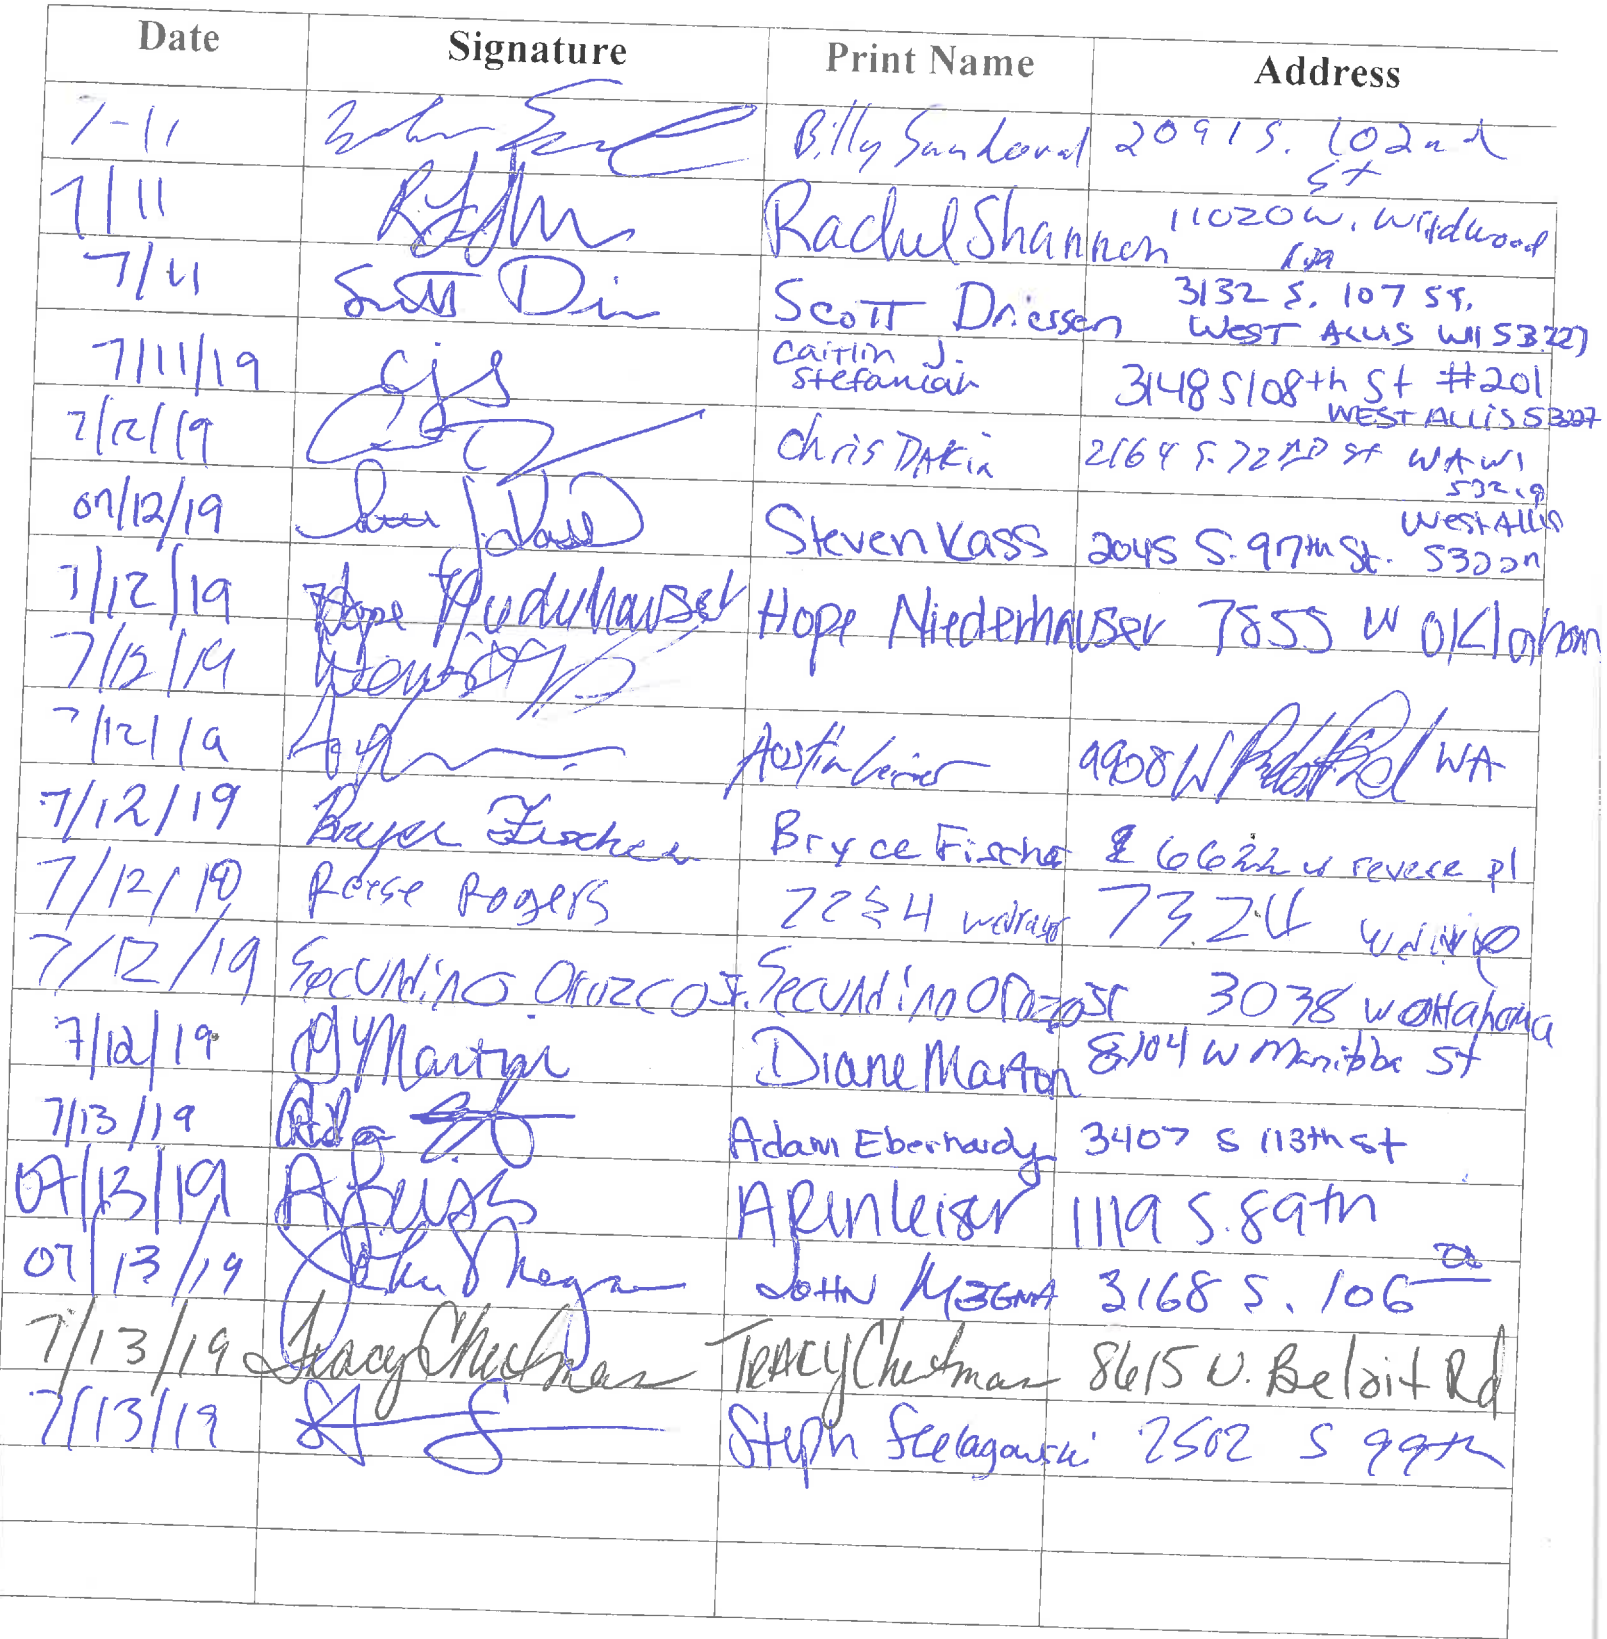 Date Signature Print Name Address
7-11 Billy Sandoval 2091 S. 102nd
St
7/11 Rachel Shannon 11020 W. Wildwood
Ln
7/11 Scott Scott Driessen 3132 S. 107 St.
WEST ALLIS WI 53227
7/11/19 CJS Caitlin J.
Stefaniak 3148 S 108th St #201
WEST ALLIS 53227
7/12/19 Chris DAKin 2164 S. 72ND St WA WI
53219
07/12/19 Steven Kass 2045 S. 97th St. West Allis
53227
7/12/19 Hope Niederhauser Hope Niederhauser 7855 W Oklahom
7/12/19
7/12/19 Austin 9908 W Rd WA
7/12/19 Bryce Fischer Bryce Fische 6622 w revere pl
7/12/19 Reese Rogers 7224 7324
7/12/19 Secundino Orozco Sr. Secundino Orozco Sr 3038 w Oklahoma
7/12/19 D Y Martin Diane Marton 8104 W Manitoba St
7/13/19 Adam Eberhardy 3407 S 113th st
07/13/19 ARin leiser 1119 S. 89th
07/13/19 John Megna JOHN MEGNA 3168 S. 106
7/13/19 Tracy Chestman TRACY Chestman 8615 W. Beloit Rd
7/13/19 Steph Szelagowski 2502 S 99th